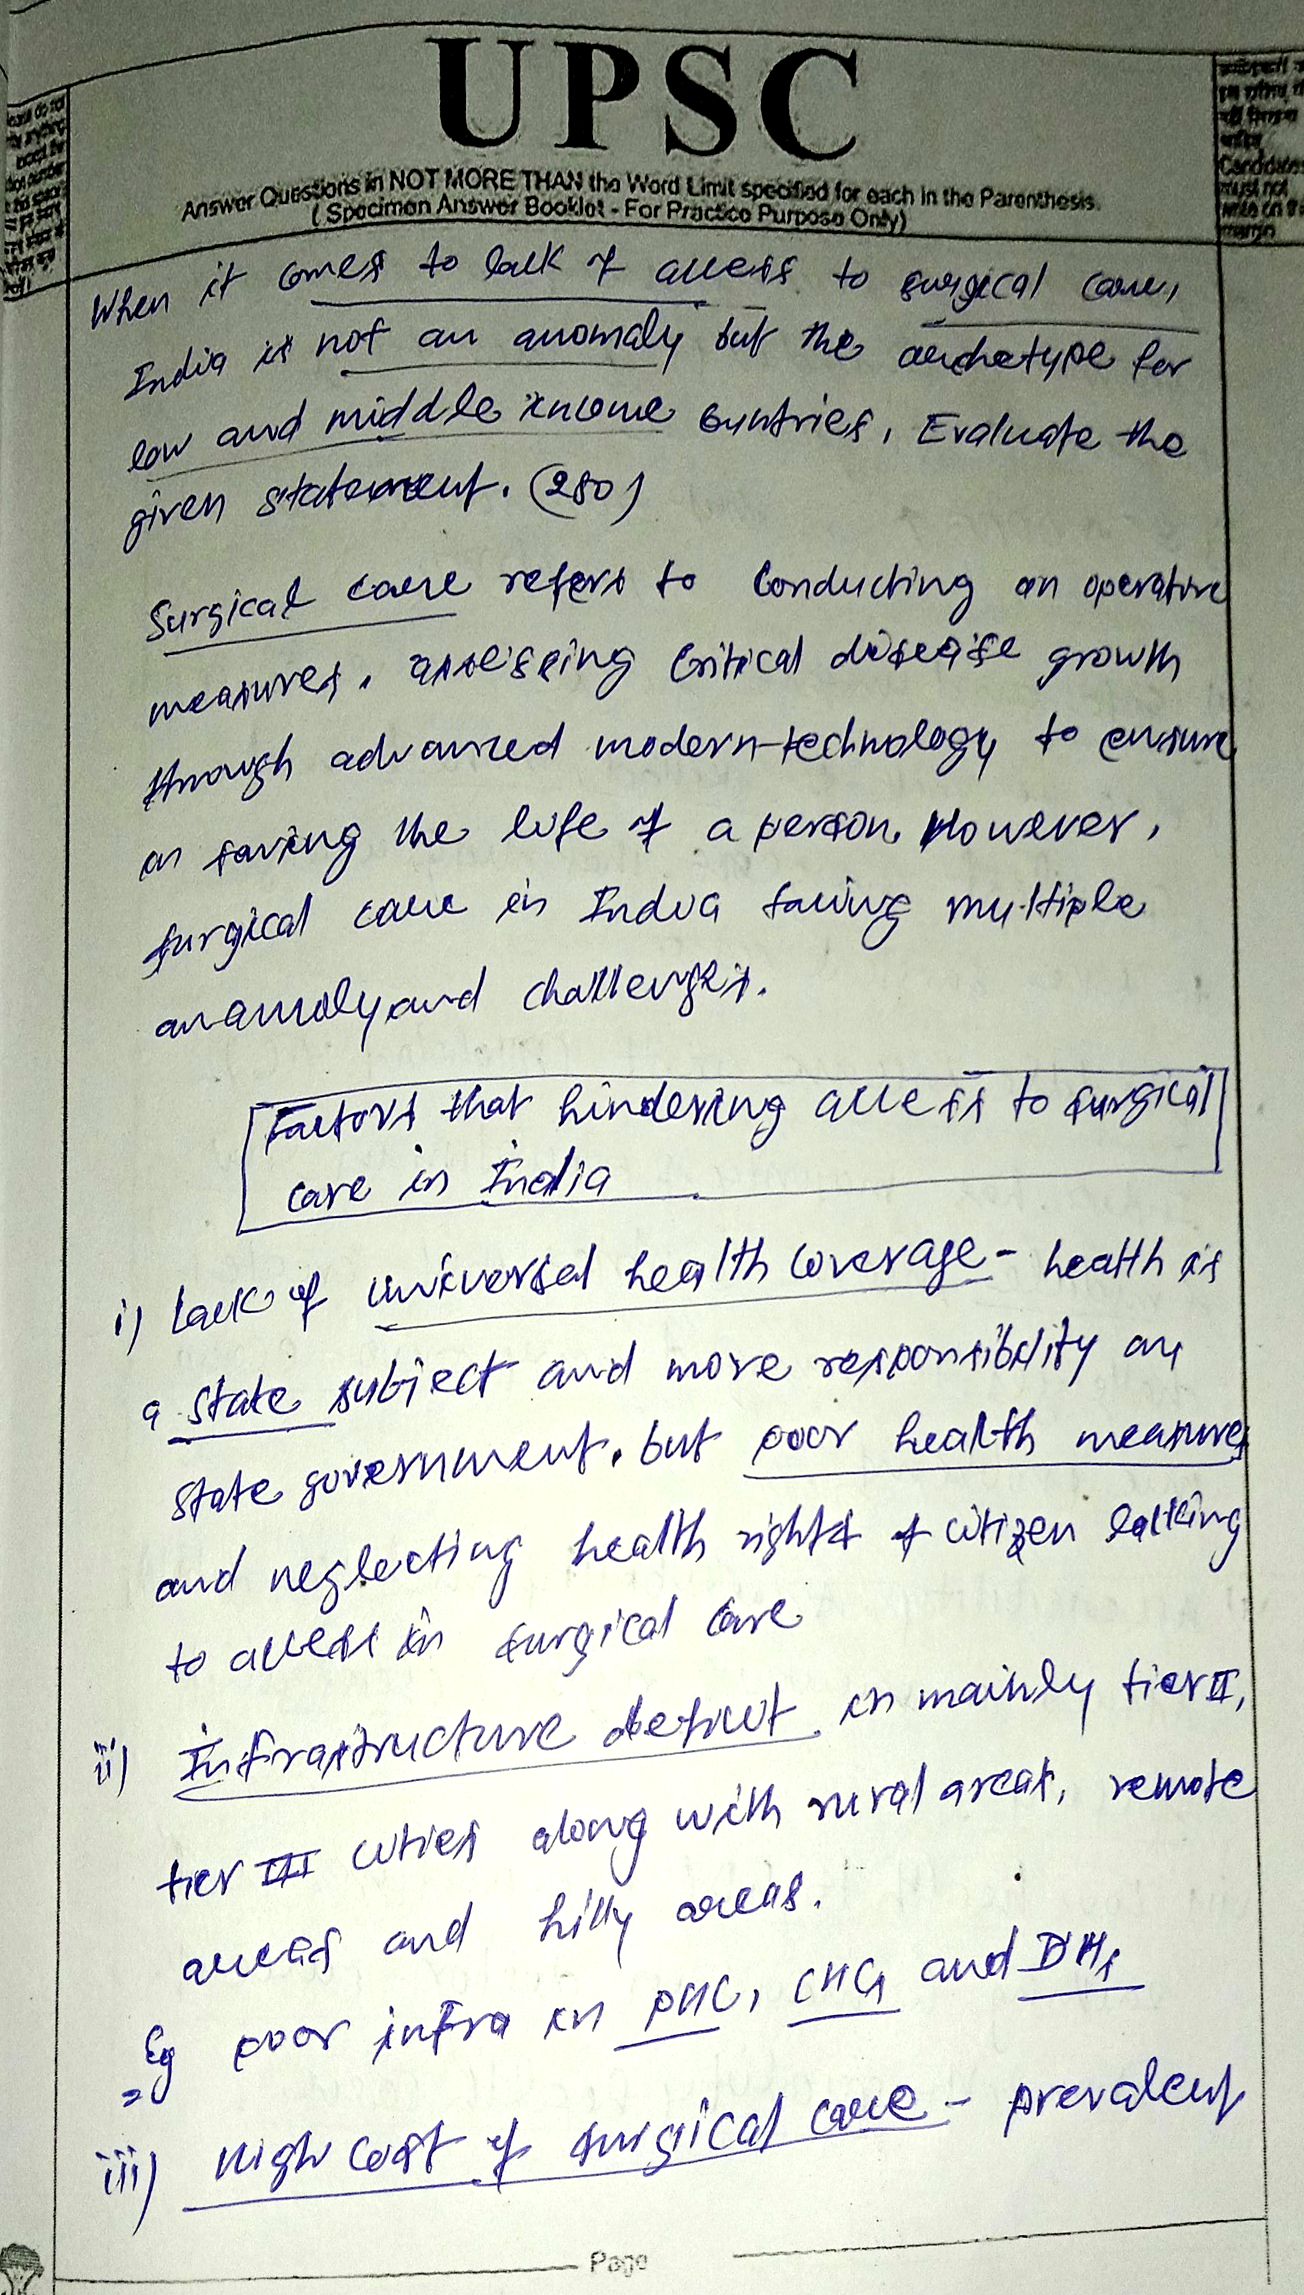 UPSC
Answer Questions in NOT MORE THAN the Word Limit specified for each in the Parenthesis.
( Specimen Answer Booklet - For Practice Purpose Only)
Candidates
must not
write on the
margin
When it comes to lack of access to surgical care,
India is not an anomaly but the archetype for
low and middle income countries, Evaluate the
given statement. (250)
Surgical care refers to conducting an operative
measures, assessing critical disease growth
through advanced modern-technology to ensure
on saving the life of a person. However,
surgical care in India facing multiple
anamoly and challenges.
Factors that hindering access to surgical
care in India
i) Lack of universal health coverage - health is
a state subject and more responsibility on
state government, but poor health measures
and neglecting health rights of citizen lacking
to access in surgical care
ii) Infrastructure deficit in mainly tier II,
tier III cities along with rural areas, remote
areas and hilly areas.
Eg poor infra in PHC, CHCs and DHs
iii) High cost of surgical care - prevalent
Page